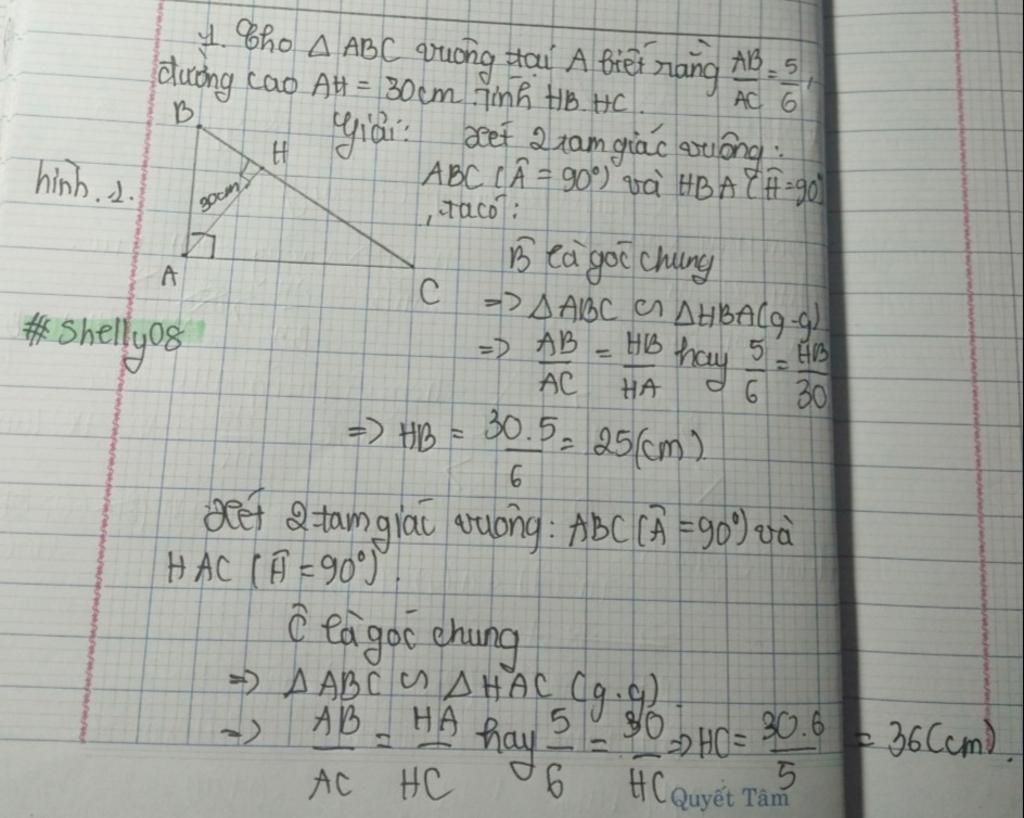 1. Cho Δ ABC vuông tại A biết rằng AB/AC = 5/6,
đường cao AH = 30cm. Tính HB. HC.
Giải: Xét 2 tam giác vuông:
B
H
30cm
A
C
hình. 1.
ABC (Â = 90°) và HBA (Ĥ = 90°
, ta có:
B̂ là góc chung
=> Δ ABC ∽ ΔHBA(g-g)
#Shelly08
=> AB/AC = HB/HA hay 5/6 = HB/30
=> HB = 30.5/6 = 25(cm)
Xét 2 tam giác vuông: ABC (Â = 90°) và
HAC (Ĥ = 90°).
Ĉ là góc chung
=> Δ ABC ∽ Δ HAC (g.g)
=> AB/AC = HA/HC hay 5/6 = 30/HC => HC = 30.6/5 = 36(cm).
Quyết Tâm